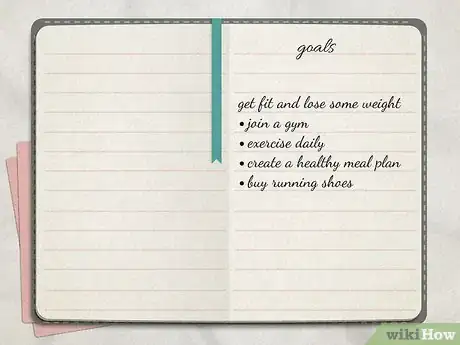 goals
get fit and lose some weight
• join a gym
• exercise daily
• create a healthy meal plan
• buy running shoes
wikiHow